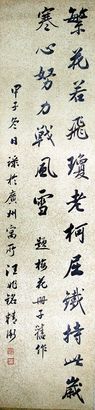 繁花若飛瓊老柯屈鐵持此歲
寒心努力戰風雪 題梅花冊子舊作
甲子冬日錄於廣州寓所 汪兆銘精衛